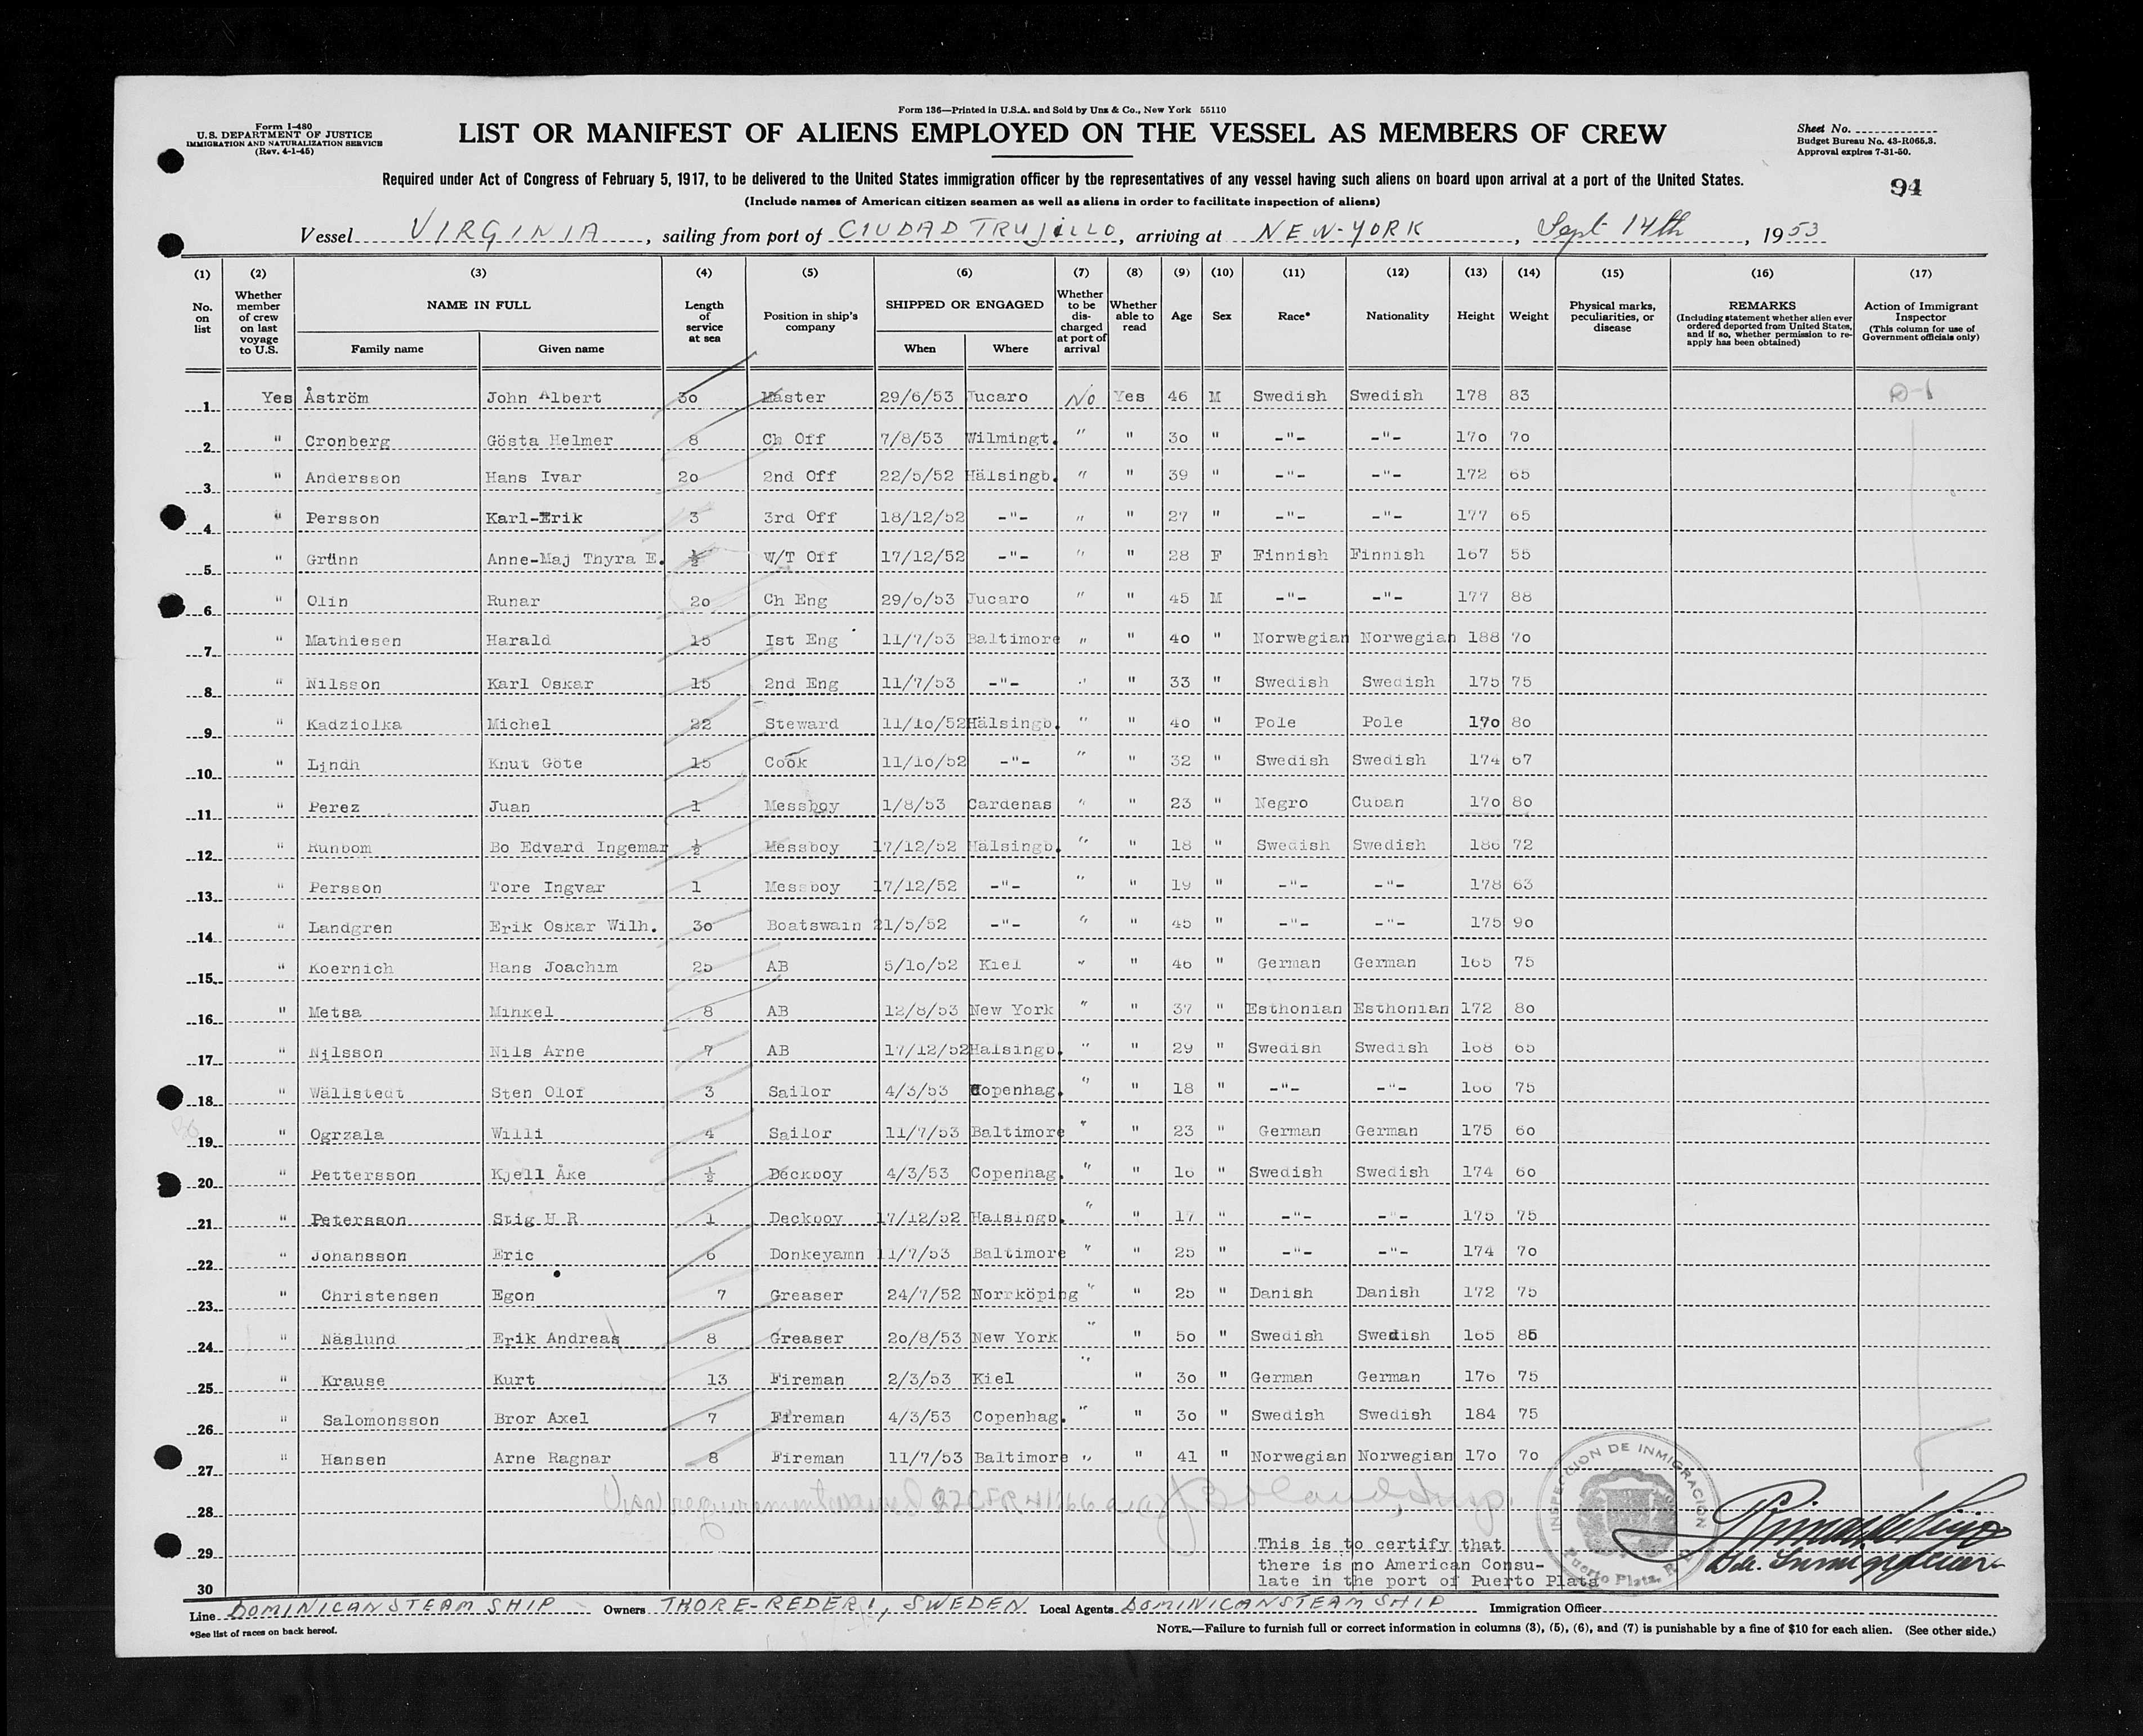 Form 136—Printed in U.S.A. and Sold by Unz & Co., New York 55110
Form I-480
U.S. DEPARTMENT OF JUSTICE
IMMIGRATION AND NATURALIZATION SERVICE
(Rev. 4-1-45)
LIST OR MANIFEST OF ALIENS EMPLOYED ON THE VESSEL AS MEMBERS OF CREW
Sheet No.
Budget Bureau No. 43-R065.3.
Approval expires 7-31-50.
Required under Act of Congress of February 5, 1917, to be delivered to the United States immigration officer by the representatives of any vessel having such aliens on board upon arrival at a port of the United States.
94
(Include names of American citizen seamen as well as aliens in order to facilitate inspection of aliens)
Vessel VIRGINIA, sailing from port of CIUDAD TRUJILLO, arriving at NEW-YORK, Sept 14th, 1953
(1) (2) (3) (4) (5) (6) (7) (8) (9) (10) (11) (12) (13) (14) (15) (16) (17)
No. on list
Whether member of crew on last voyage to U.S.
NAME IN FULL
Family name Given name
Length of service at sea
Position in ship's company
SHIPPED OR ENGAGED
When Where
Whether to be discharged at port of arrival
Whether able to read
Age
Sex
Race*
Nationality
Height
Weight
Physical marks, peculiarities, or disease
REMARKS
(Including statement whether alien ever ordered deported from United States, and if so, whether permission to re-apply has been obtained)
Action of Immigrant Inspector
(This column for use of Government officials only)
1 Yes Åström John Albert 30 Master 29/6/53 Jucaro No Yes 46 M Swedish Swedish 178 83
2 " Cronberg Gösta Helmer 8 Ch Off 7/8/53 Wilmingt. " " 30 " -"- -"- 170 70
3 " Andersson Hans Ivar 20 2nd Off 22/5/52 Hälsingb. " " 39 " -"- -"- 172 65
4 " Persson Karl-Erik 3 3rd Off 18/12/52 -"- " " 27 " -"- -"- 177 65
5 " Grünn Anne-Maj Thyra E. ½ W/T Off 17/12/52 -"- " " 28 F Finnish Finnish 167 55
6 " Olin Runar 20 Ch Eng 29/6/53 Jucaro " " 45 M -"- -"- 177 88
7 " Mathiesen Harald 15 Ist Eng 11/7/53 Baltimore " " 40 " Norwegian Norwegian 188 70
8 " Nilsson Karl Oskar 15 2nd Eng 11/7/53 -"- " " 33 " Swedish Swedish 175 75
9 " Kadziolka Michel 22 Steward 11/10/52 Hälsingb. " " 40 " Pole Pole 170 80
10 " Lindh Knut Göte 15 Cook 11/10/52 -"- " " 32 " Swedish Swedish 174 67
11 " Perez Juan 1 Messboy 1/8/53 Cardenas " " 23 " Negro Cuban 170 80
12 " Runbom Bo Edvard Ingemar ½ Messboy 17/12/52 Hälsingb. " " 18 " Swedish Swedish 186 72
13 " Persson Tore Ingvar 1 Messboy 17/12/52 -"- " " 19 " -"- -"- 178 63
14 " Landgren Erik Oskar Wilh. 30 Boatswain 21/5/52 -"- " " 45 " -"- -"- 175 90
15 " Koernich Hans Joachim 25 AB 5/10/52 Kiel " " 46 " German German 165 75
16 " Metsa Minkel 8 AB 12/8/53 New York " " 37 " Esthonian Esthonian 172 80
17 " Nilsson Nils Arne 7 AB 17/12/52 Halsingb. " " 29 " Swedish Swedish 168 65
18 " Wällstedt Sten Olof 3 Sailor 4/3/53 Copenhag. " " 18 " -"- -"- 166 75
19 " Ogrzala Willi 4 Sailor 11/7/53 Baltimore " " 23 " German German 175 60
20 " Pettersson Kjell Åke ½ Deckboy 4/3/53 Copenhag. " " 16 " Swedish Swedish 174 60
21 " Petersson Stig H R 1 Deckboy 17/12/52 Halsingb. " " 17 " -"- -"- 175 75
22 " Johansson Eric 6 Donkeyamn 11/7/53 Baltimore " " 25 " -"- -"- 174 70
23 " Christensen Egon 7 Greaser 24/7/52 Norrköping " " 25 " Danish Danish 172 75
24 " Näslund Erik Andreas 8 Greaser 20/8/53 New York " " 50 " Swedish Swedish 165 85
25 " Krause Kurt 13 Fireman 2/3/53 Kiel " " 30 " German German 176 75
26 " Salomonsson Bror Axel 7 Fireman 4/3/53 Copenhag. " " 30 " Swedish Swedish 184 75
27 " Hansen Arne Ragnar 8 Fireman 11/7/53 Baltimore " " 41 " Norwegian Norwegian 170 70
28
29
30
This is to certify that
there is no American Consu-
late in the port of Puerto Plata
INSPECCION DE INMIGRACION
Puerto Plata, R. D.
Line DOMINICAN STEAM SHIP Owners THORE-REDERI, SWEDEN Local Agents DOMINICAN STEAM SHIP Immigration Officer
*See list of races on back hereof.
NOTE.—Failure to furnish full or correct information in columns (3), (5), (6), and (7) is punishable by a fine of $10 for each alien. (See other side.)